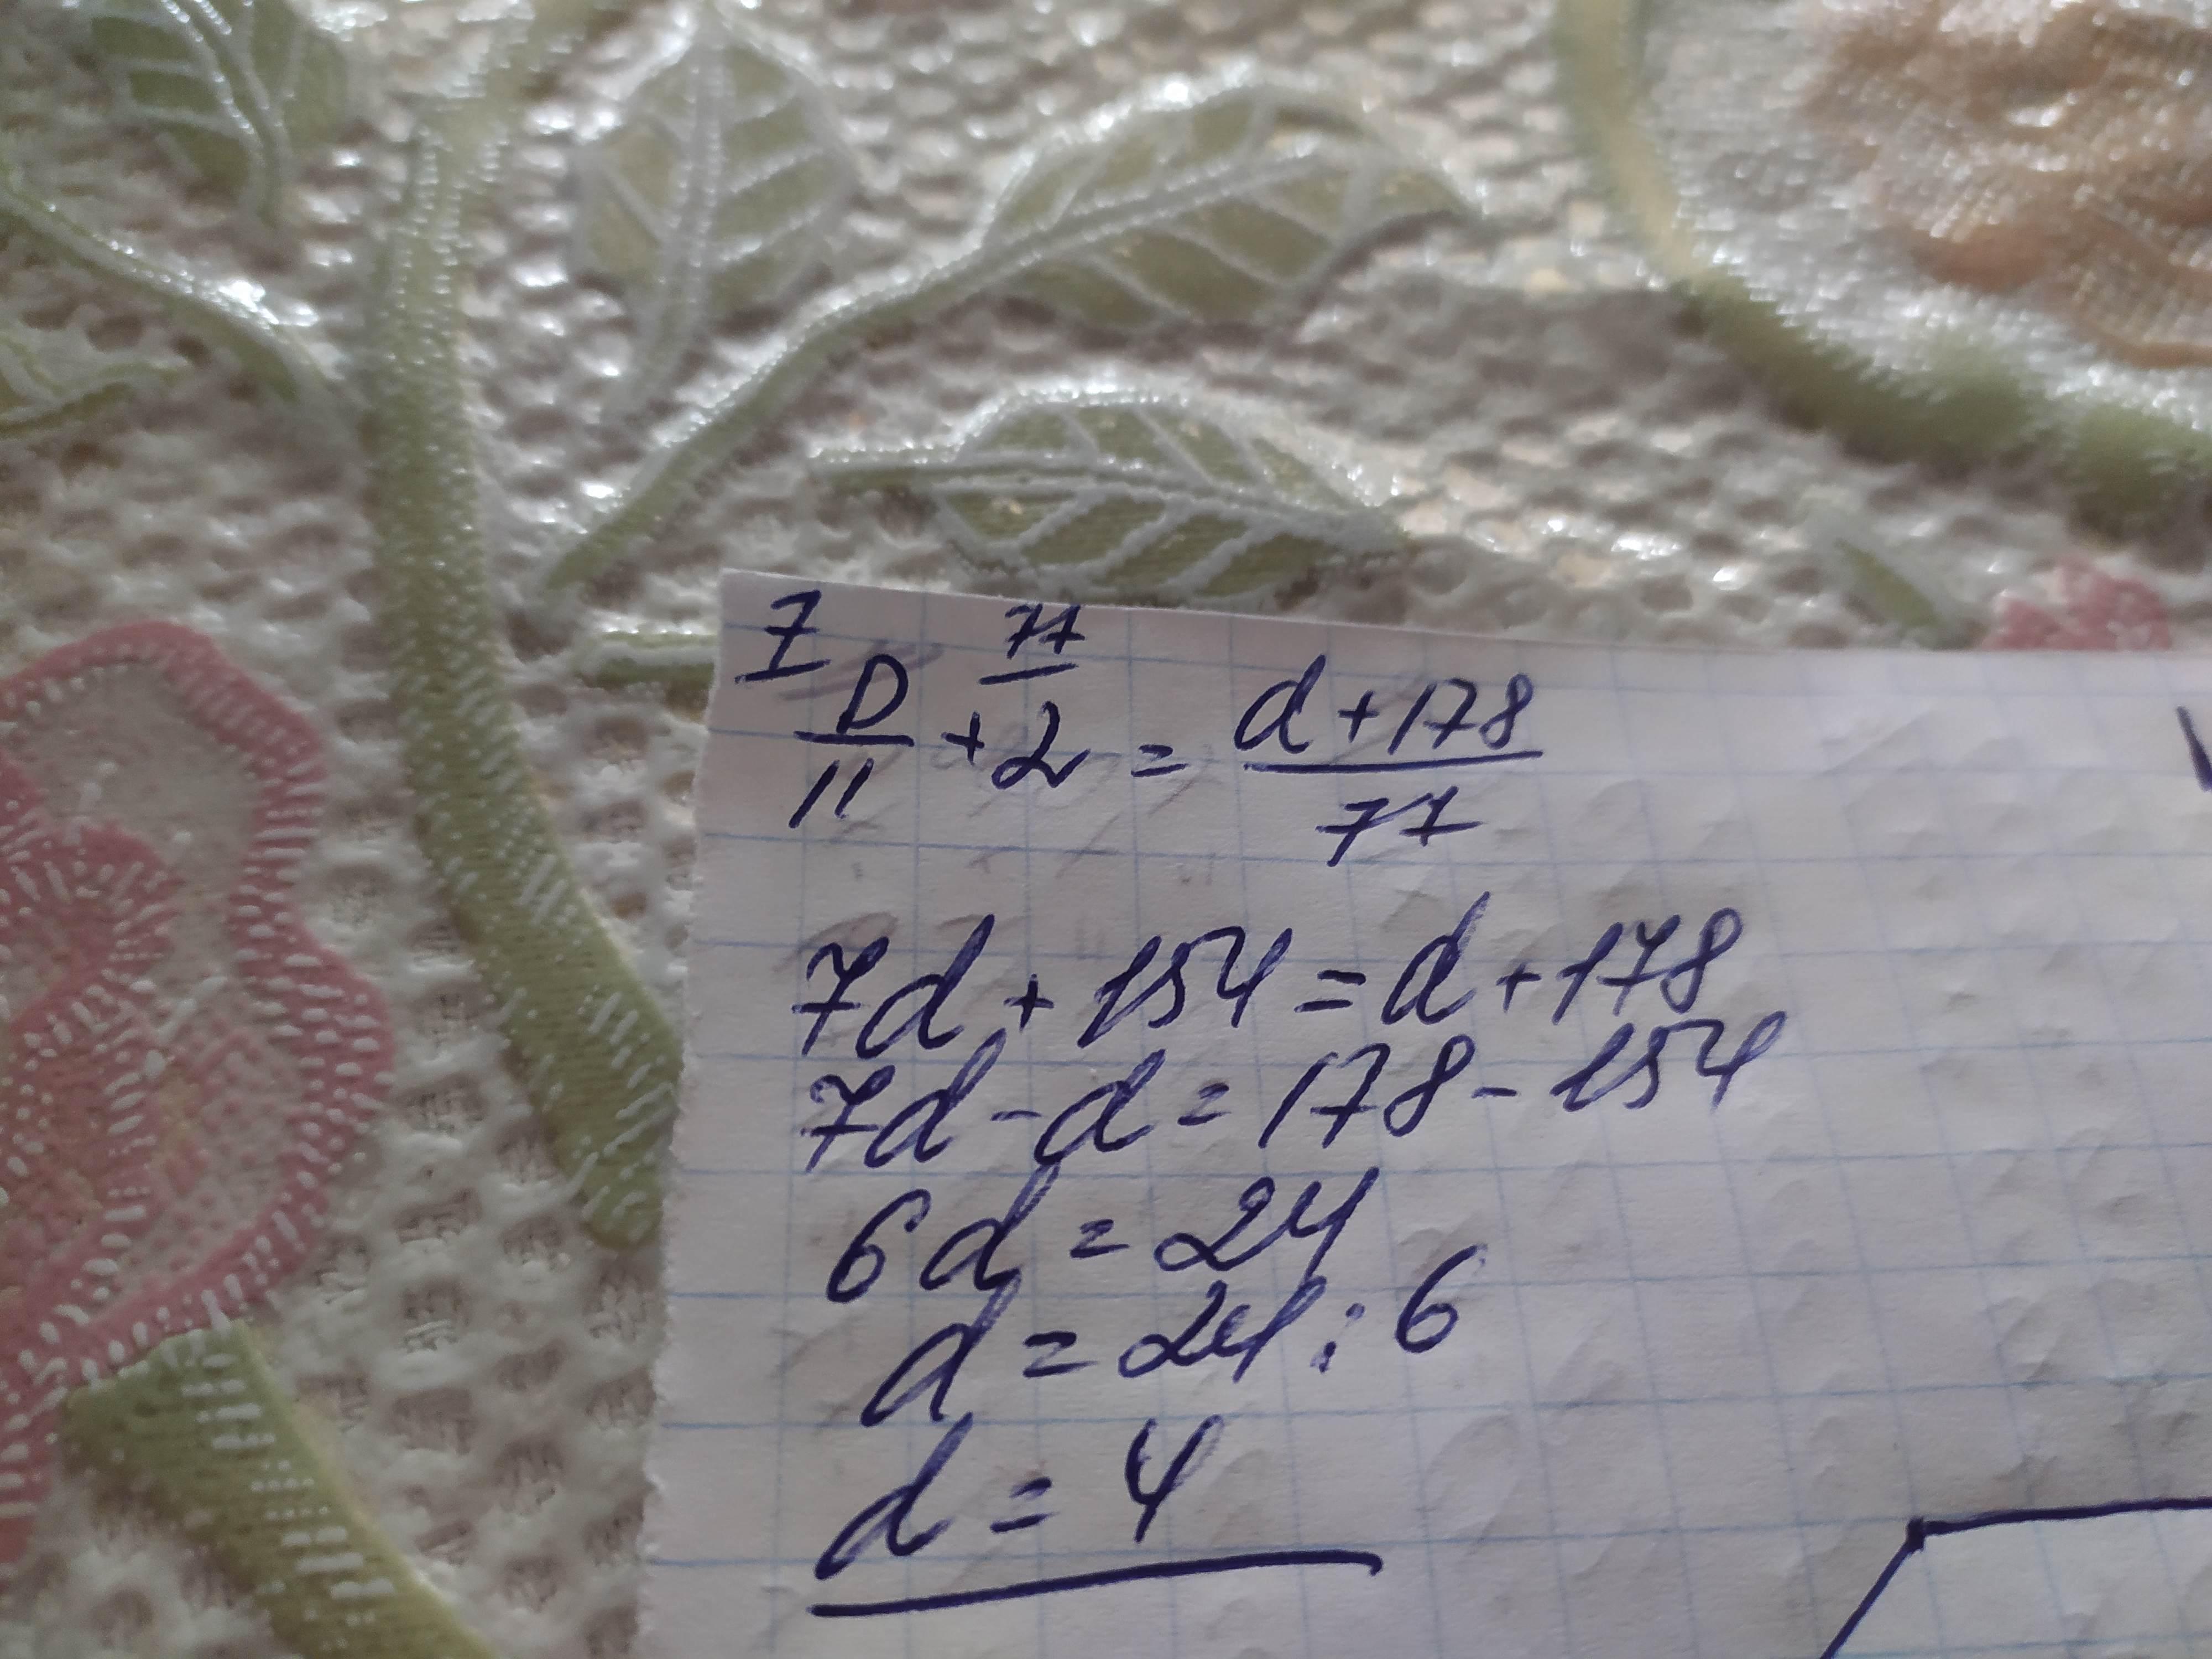 7 77
D/11 + 2 = d+178/77
7d + 154 = d + 178
7d - d = 178 - 154
6d = 24
d = 24 : 6
d = 4